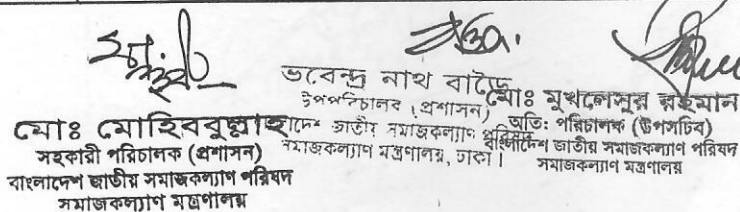 ভবেন্দ্র নাথ বাড়ৈ
উপপরিচালক (প্রশাসন)
বাংলাদেশ জাতীয় সমাজকল্যাণ পরিষদ
সমাজকল্যাণ মন্ত্রণালয়, ঢাকা।
মোঃ মোহিববুল্লাহ
সহকারী পরিচালক (প্রশাসন)
বাংলাদেশ জাতীয় সমাজকল্যাণ পরিষদ
সমাজকল্যাণ মন্ত্রণালয়
মোঃ মুখলেসুর রহমান
অতি: পরিচালক (উপসচিব)
বাংলাদেশ জাতীয় সমাজকল্যাণ পরিষদ
সমাজকল্যাণ মন্ত্রণালয়